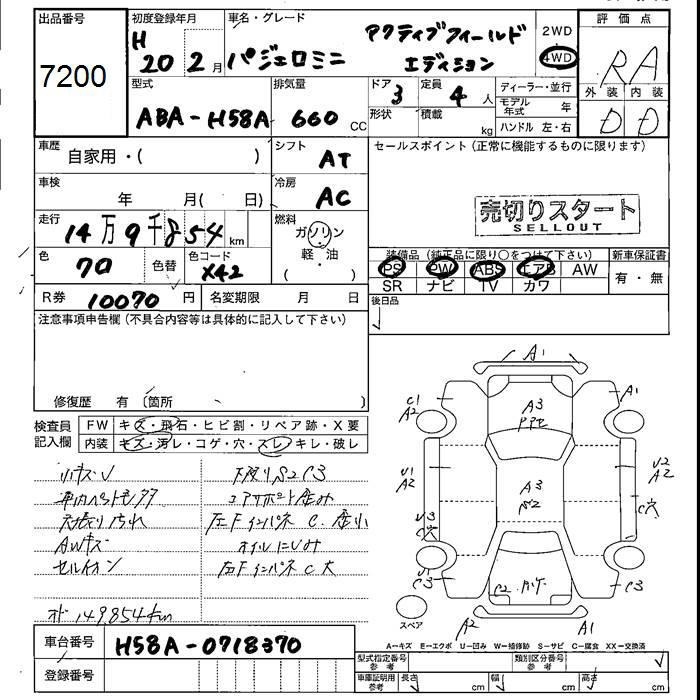 出品番号
7200
初度登録年月
H
20 2 月
車名・グレード
パジェロミニ
アクティブフィールド
エディション
2WD
4WD
評価点
RA
外装 内装
D D
型式
ABA-H58A
排気量
660 CC
ドア
3
定員
4 人
形状
積載
kg
ディーラー・並行
モデル年式 年
ハンドル 左・右
車歴
自家用・( )
シフト
AT
セールスポイント (正常に機能するものに限ります)
車検
年 月( 日)
冷房
AC
売切りスタート
SELLOUT
走行
14万9千854 km
燃料
ガソリン
軽・油
( )
色
色替
色コード
X42
装備品 (純正品に限り○をつけて下さい)
新車保証書
PS PW ABS エアB AW
SR ナビ TV カワ
有・無
R券 10070 円
名変期限 月 日
後日品
注意事項申告欄 (不具合内容等は具体的に記入して下さい)
修復歴 有 〔箇所
検査員
記入欄
FW キズ・飛石・ヒビ割・リペア跡・X要
内装 キズ・汚レ・コゲ・穴・スレ・キレ・破レ
小キズU
下廻りS2C3
天張り汚れ
AWキズ
オイルにじみ
左FインパネC大
オド149854km
車台番号
H58A-0718370
登録番号
A1
C1
A2
A1
A3
U1
A2
A3
S2
U2
A2
C穴
U3
C穴
U1
C3
C2
C3
A2
A1
スペア
A=キズ E=エクボ U=凹み W=補修跡 S=サビ C=腐食 XX=交換済
型式指定番号
参考
類別区分番号
参考
車庫証明用
参考
長さ cm 幅 cm 高さ cm